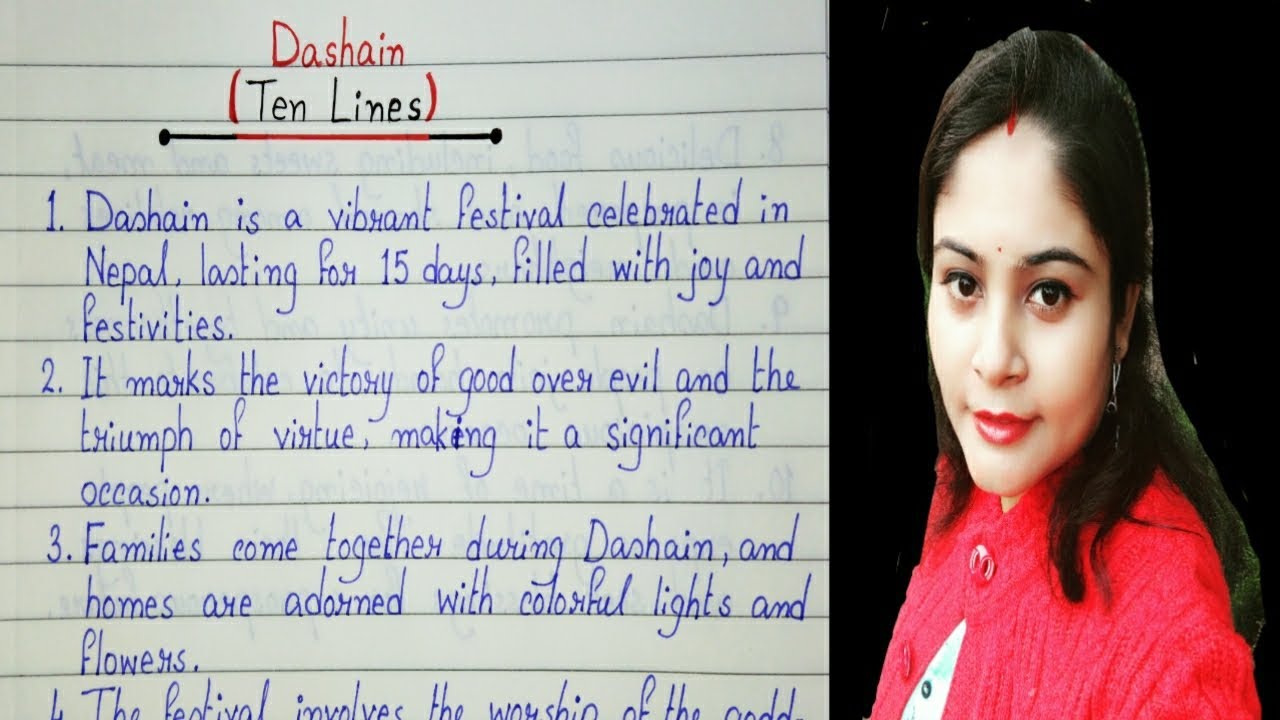 Dashain
(Ten Lines)
1. Dashain is a vibrant festival celebrated in
Nepal, lasting for 15 days, filled with joy and
festivities.
2. It marks the victory of good over evil and the
triumph of virtue, making it a significant
occasion.
3. Families come together during Dashain, and
homes are adorned with colorful lights and
flowers.
4. The festival involves the worship of the godd-